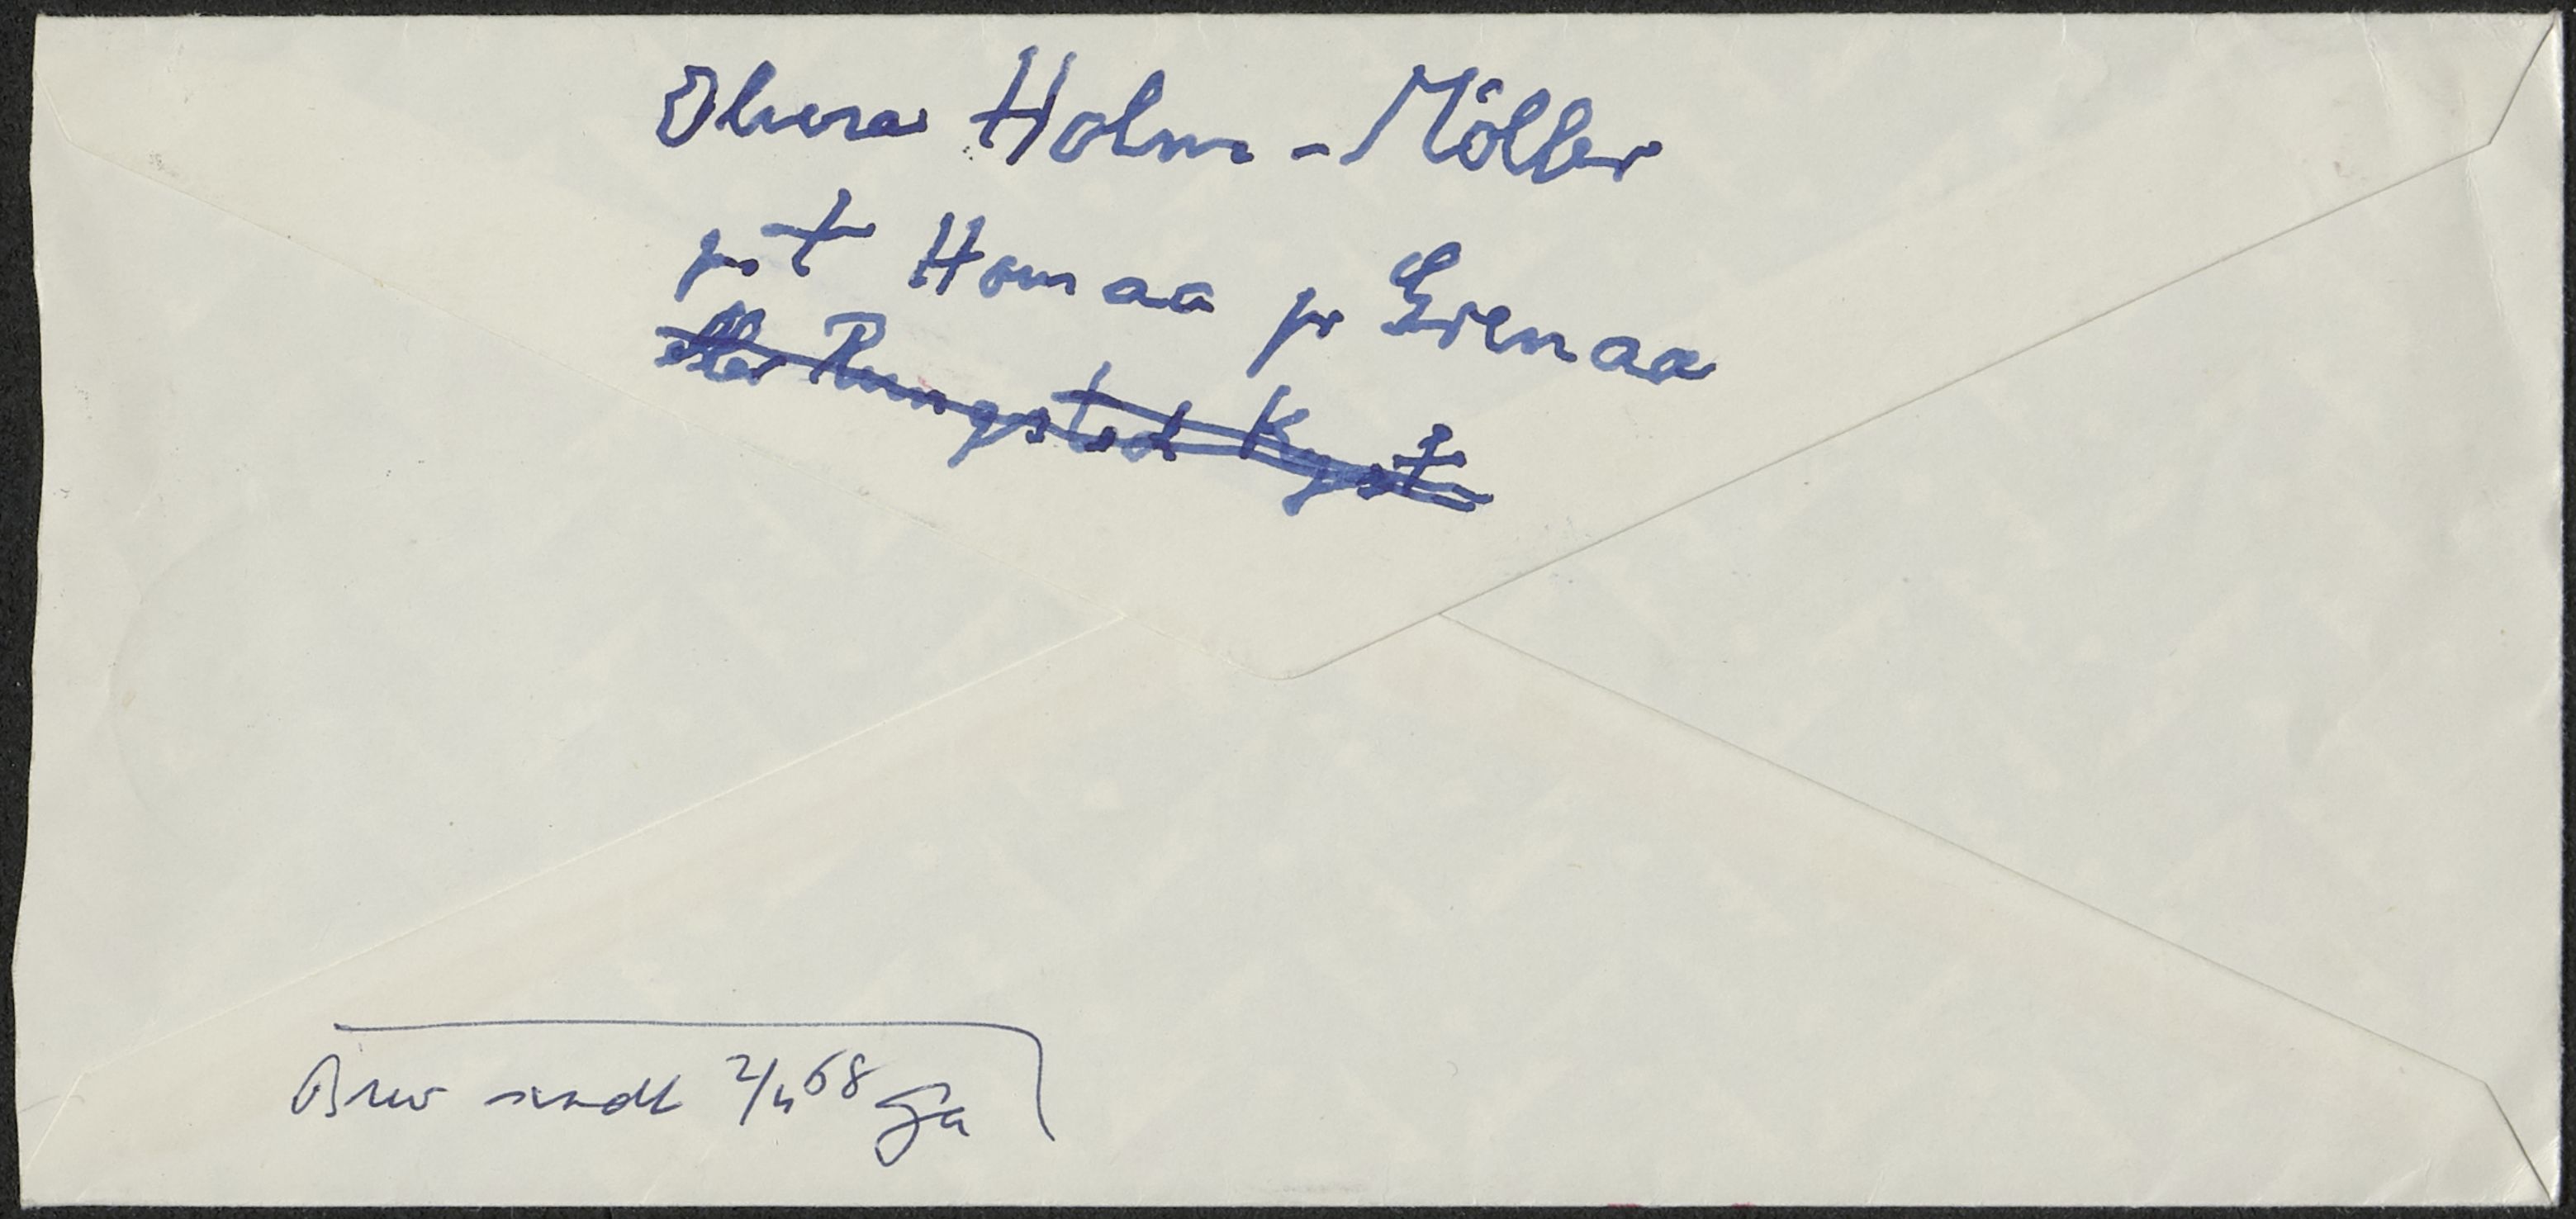 Olivia Holm-Möller
p.t Homaa pr Grenaa
eller Rungsted Kyst
Brev sendt 2/4 68